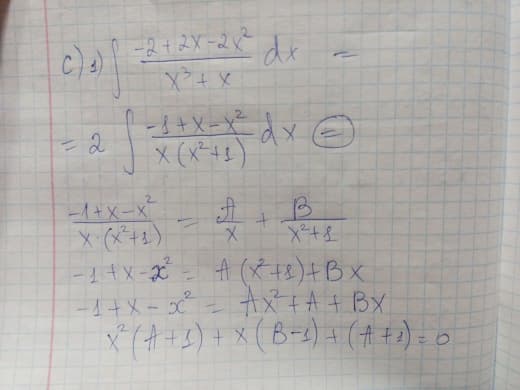 c) 1) ∫ (-2+2x-2x²)/(x³+x) dx =
= 2 ∫ (-1+x-x²)/(x(x²+1)) dx (=)
(-1+x-x²)/(x·(x²+1)) = A/x + B/(x²+1)
-1+x-x² = A(x²+1)+Bx
-1+x-x² = Ax²+A+Bx
x²(A+1)+x(B-1)+(A+1)=0